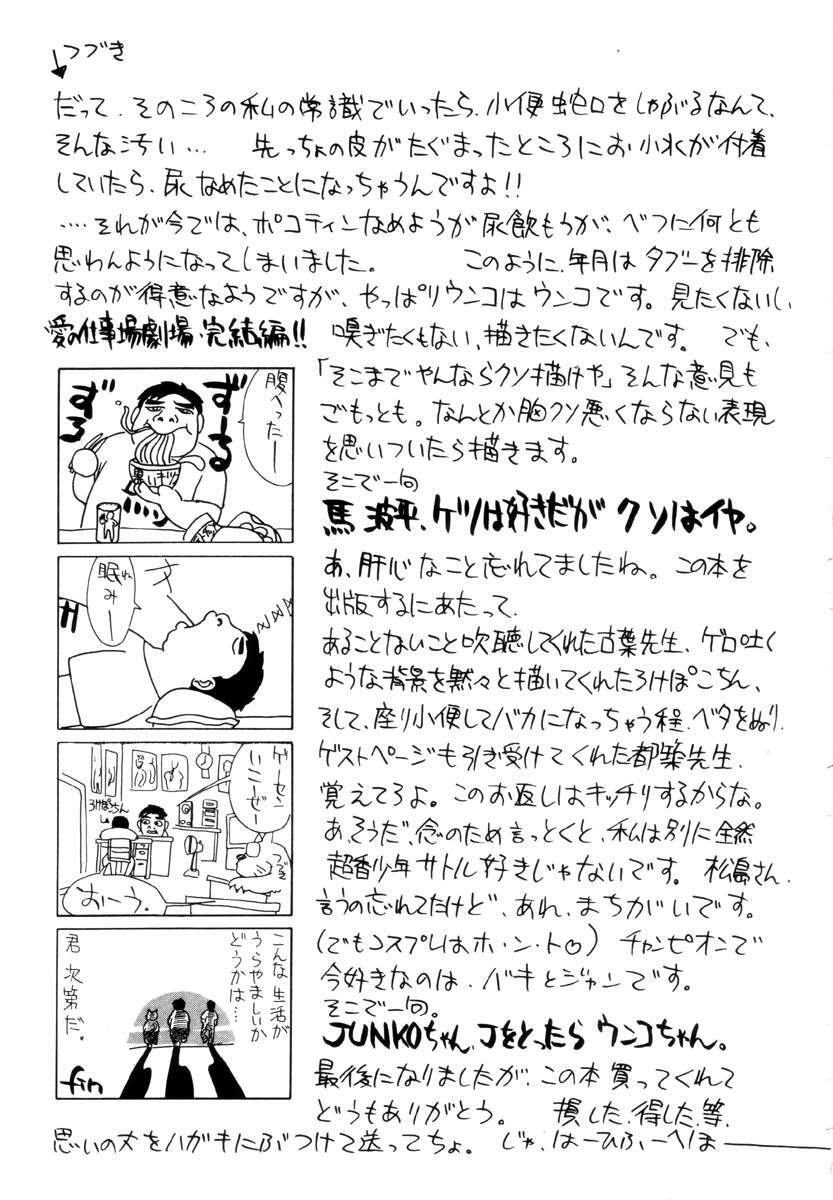 つづき
だって、そのころの私の常識でいったら、小便蛇口をしゃぶるなんて、
そんな汚い… 先っちょの皮がたぐまったところにお小水が付着
していたら、尿なめたことになっちゃうんですよ!!
‥‥それが今では、ポコティンなめようが尿飲もうが、べつに何とも
思わんようになってしまいました。 このように、年月はタブーを排除
するのが得意なようですが、やっぱりウンコはウンコです。見たくないし、
嗅ぎたくもない、描きたくないんです。 でも、
「そこまでやんならクソ描けや」そんな意見も
ごもっとも。なんとか胸クソ悪くならない表現
を思いついたら描きます。
そこで一句
馬波平、ケツは好きだがクソはイヤ。
あ、肝心なこと忘れてましたね。この本を
出版するにあたって、
あることないこと吹聴してくれた古葉先生、ゲロ吐く
ような背景を黙々と描いてくれたろけぽこちん、
そして、座り小便してバカになっちゃう程、ベタをぬり、
ゲストページも引き受けてくれた都築先生、
覚えてろよ。このお返しはキッチリするからな。
あ、そうだ、念のため言っとくと、私は別に全然
超香少年サトル好きじゃないです。 松島さん、
言うの忘れてたけど、あれ、まちがいです。
(でもコスプレはホ・ン・ト♡) チャンピオンで
今好きなのは、バキとジャンです。
そこで一句。
JUNKOちゃん、Jをとったらウンコちゃん。
最後になりましたが、この本買ってくれて
どうもありがとう。 損した、得した、等、
思いの丈をハガキにぶつけて送ってちょ。 じゃ、はーひふーへほー
愛の仕事場劇場・完結編!!
腹へったー
ずーる
ずる
眠みー
ゲーセンいこーぜー
ろけぽこちん
おーう。
こんな生活が
うらやましいか
どうかは…
君次第だ。
fin